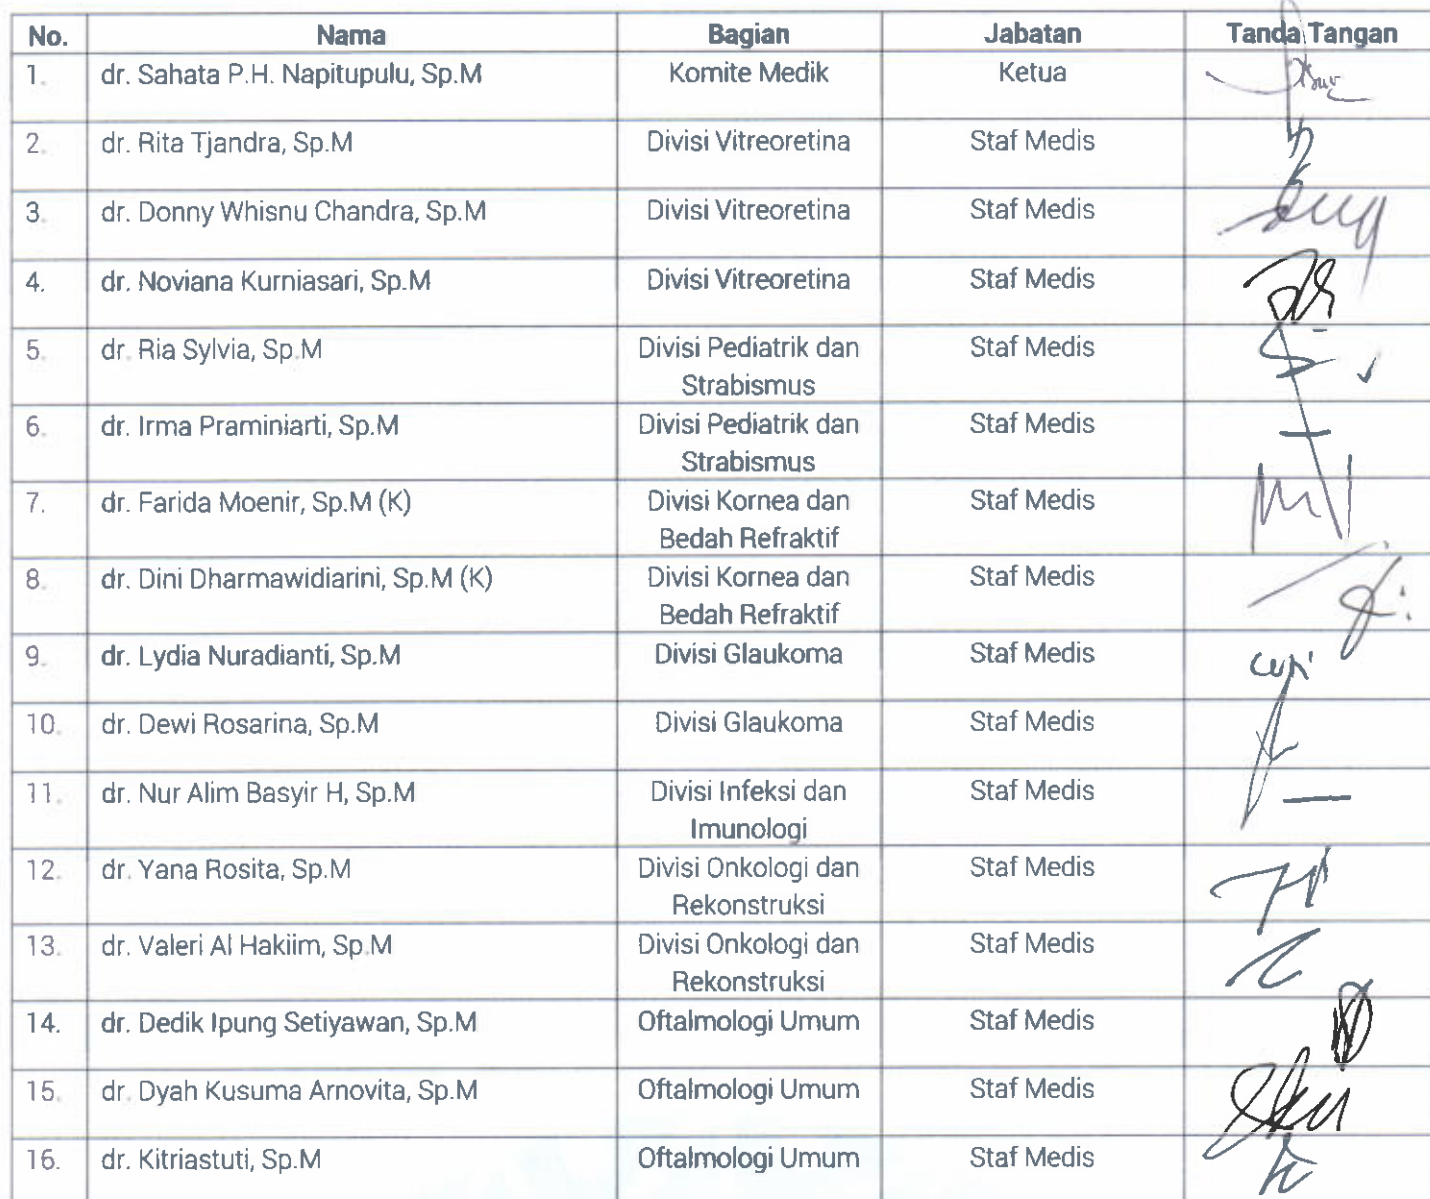 No. Nama Bagian Jabatan Tanda Tangan
1. dr. Sahata P.H. Napitupulu, Sp.M Komite Medik Ketua
2. dr. Rita Tjandra, Sp.M Divisi Vitreoretina Staf Medis
3. dr. Donny Whisnu Chandra, Sp.M Divisi Vitreoretina Staf Medis
4. dr. Noviana Kurniasari, Sp.M Divisi Vitreoretina Staf Medis
5. dr. Ria Sylvia, Sp.M Divisi Pediatrik dan Staf Medis
Strabismus
6. dr. Irma Praminiarti, Sp.M Divisi Pediatrik dan Staf Medis
Strabismus
7. dr. Farida Moenir, Sp.M (K) Divisi Kornea dan Staf Medis
Bedah Refraktif
8. dr. Dini Dharmawidiarini, Sp.M (K) Divisi Kornea dan Staf Medis
Bedah Refraktif
9. dr. Lydia Nuradianti, Sp.M Divisi Glaukoma Staf Medis
10. dr. Dewi Rosarina, Sp.M Divisi Glaukoma Staf Medis
11. dr. Nur Alim Basyir H, Sp.M Divisi Infeksi dan Staf Medis
Imunologi
12. dr. Yana Rosita, Sp.M Divisi Onkologi dan Staf Medis
Rekonstruksi
13. dr. Valeri Al Hakiim, Sp.M Divisi Onkologi dan Staf Medis
Rekonstruksi
14. dr. Dedik Ipung Setiyawan, Sp.M Oftalmologi Umum Staf Medis
15. dr. Dyah Kusuma Arnovita, Sp.M Oftalmologi Umum Staf Medis
16. dr. Kitriastuti, Sp.M Oftalmologi Umum Staf Medis